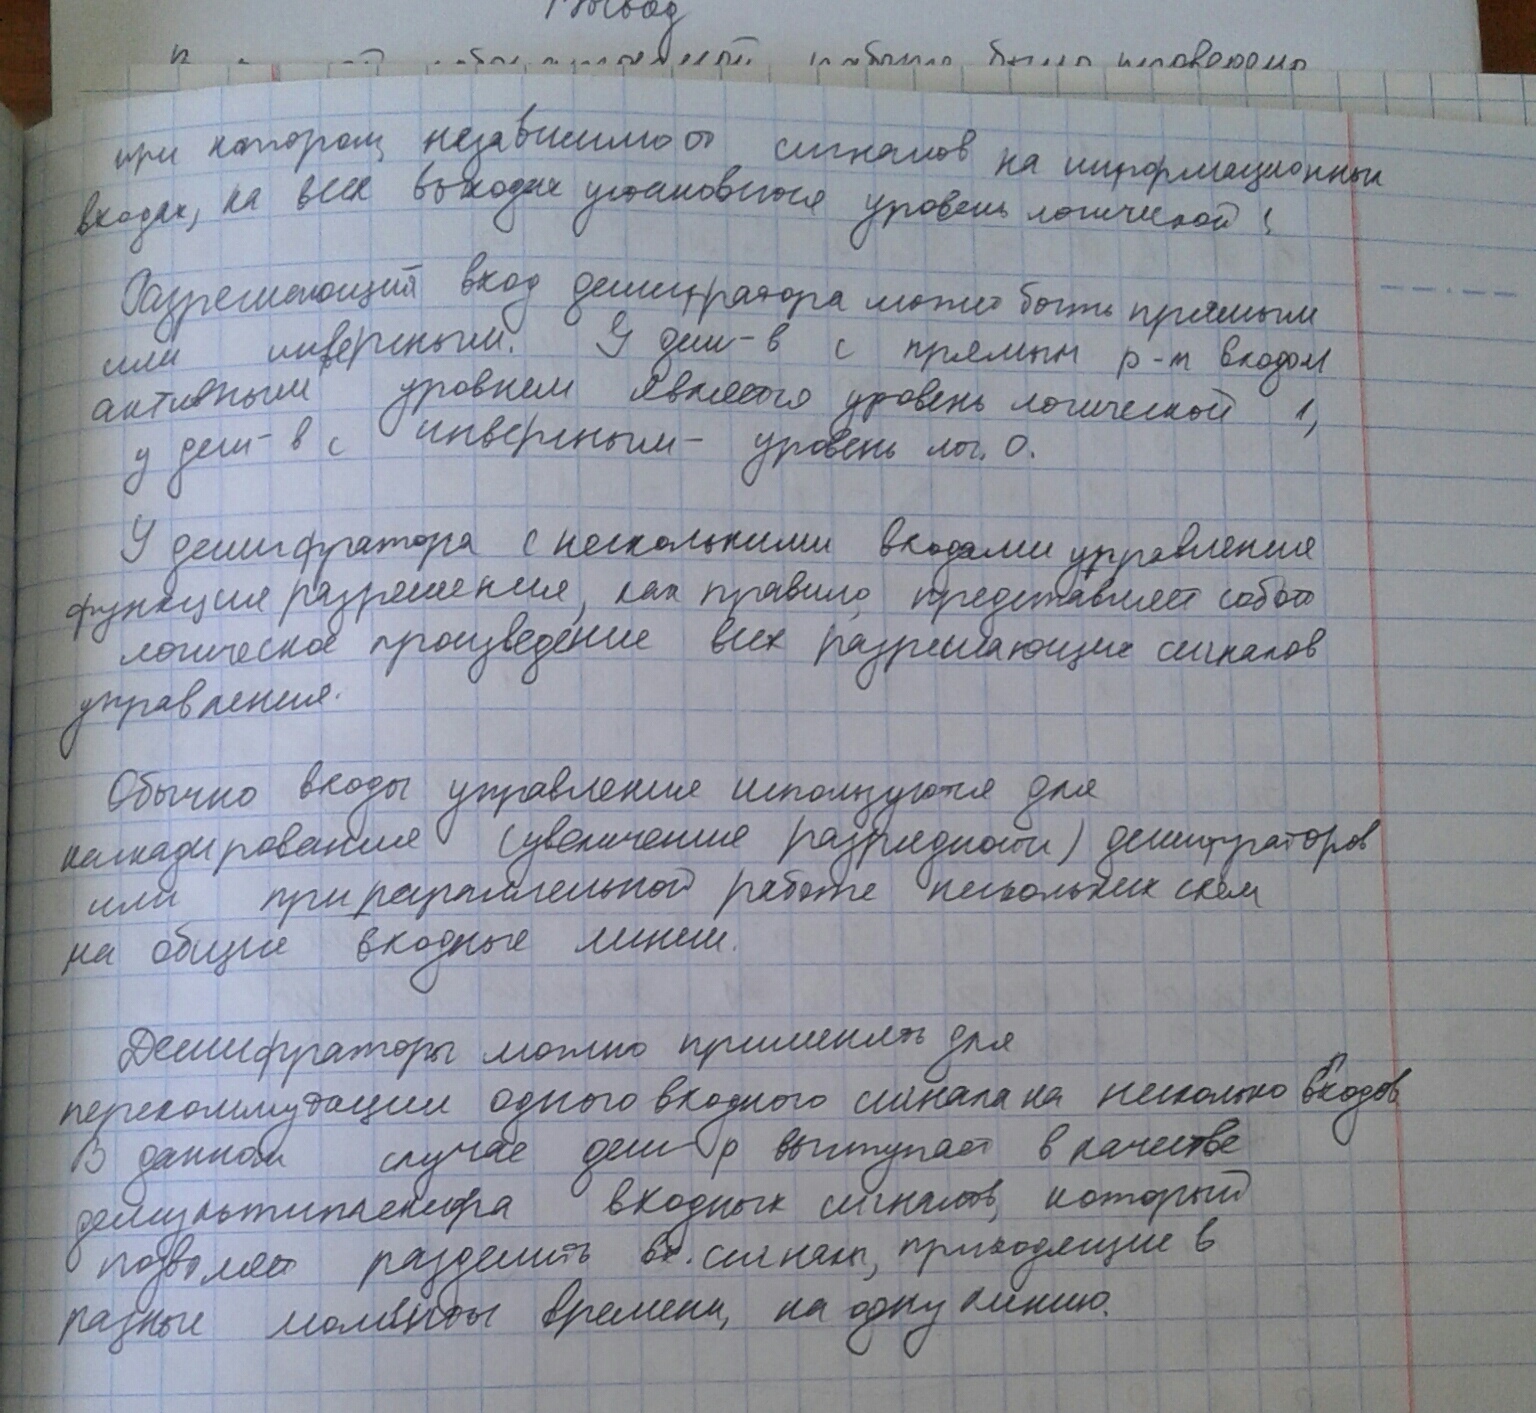 Вывод
работе было проведено
при котором, независимо от сигналов на информационных
входах, на всех выходах установится уровень логической 1
Разрешающий вход дешифратора может быть прямым
или инверсным. У деш-в с прямым р-м входом
активным уровнем является уровень логической 1,
у деш-в с инверсным - уровень лог. 0.
У дешифратора с несколькими входами управления
функция разрешения, как правило, представляет собой
логическое произведение всех разрешающих сигналов
управления.
Обычно входы управления используются для
каскадирования (увеличение разрядности) дешифраторов
или при параллельной работе нескольких схем
на общие входные линии.
Дешифраторы можно применять для
перекоммутации одного входного сигнала на несколько выходов
В данном случае деш-р выступает в качестве
демультиплексора входных сигналов, который
позволяет разделить вх. сигналы, приходящие в
разные моменты времени, на одну линию.